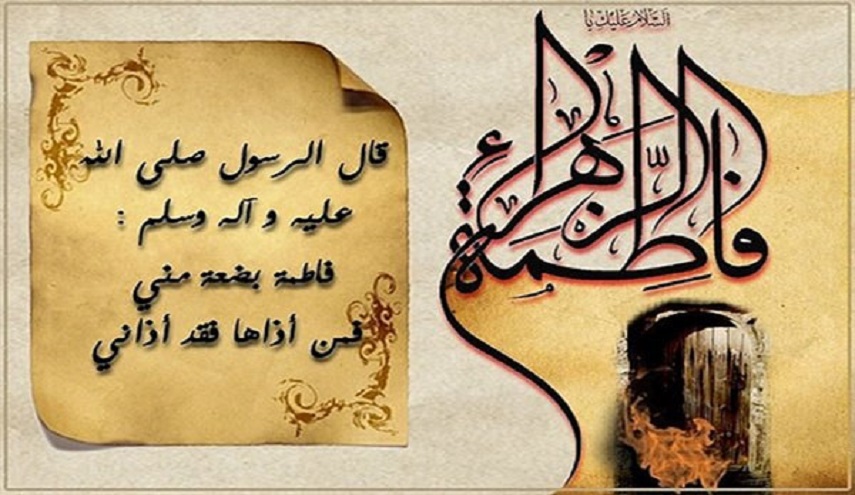 السلام عليك يا
فاطمة الزهراء
قال الرسول صلى الله
عليه و آله وسلم :
فاطمة بضعة مني
فمن أذاها فقد أذاني